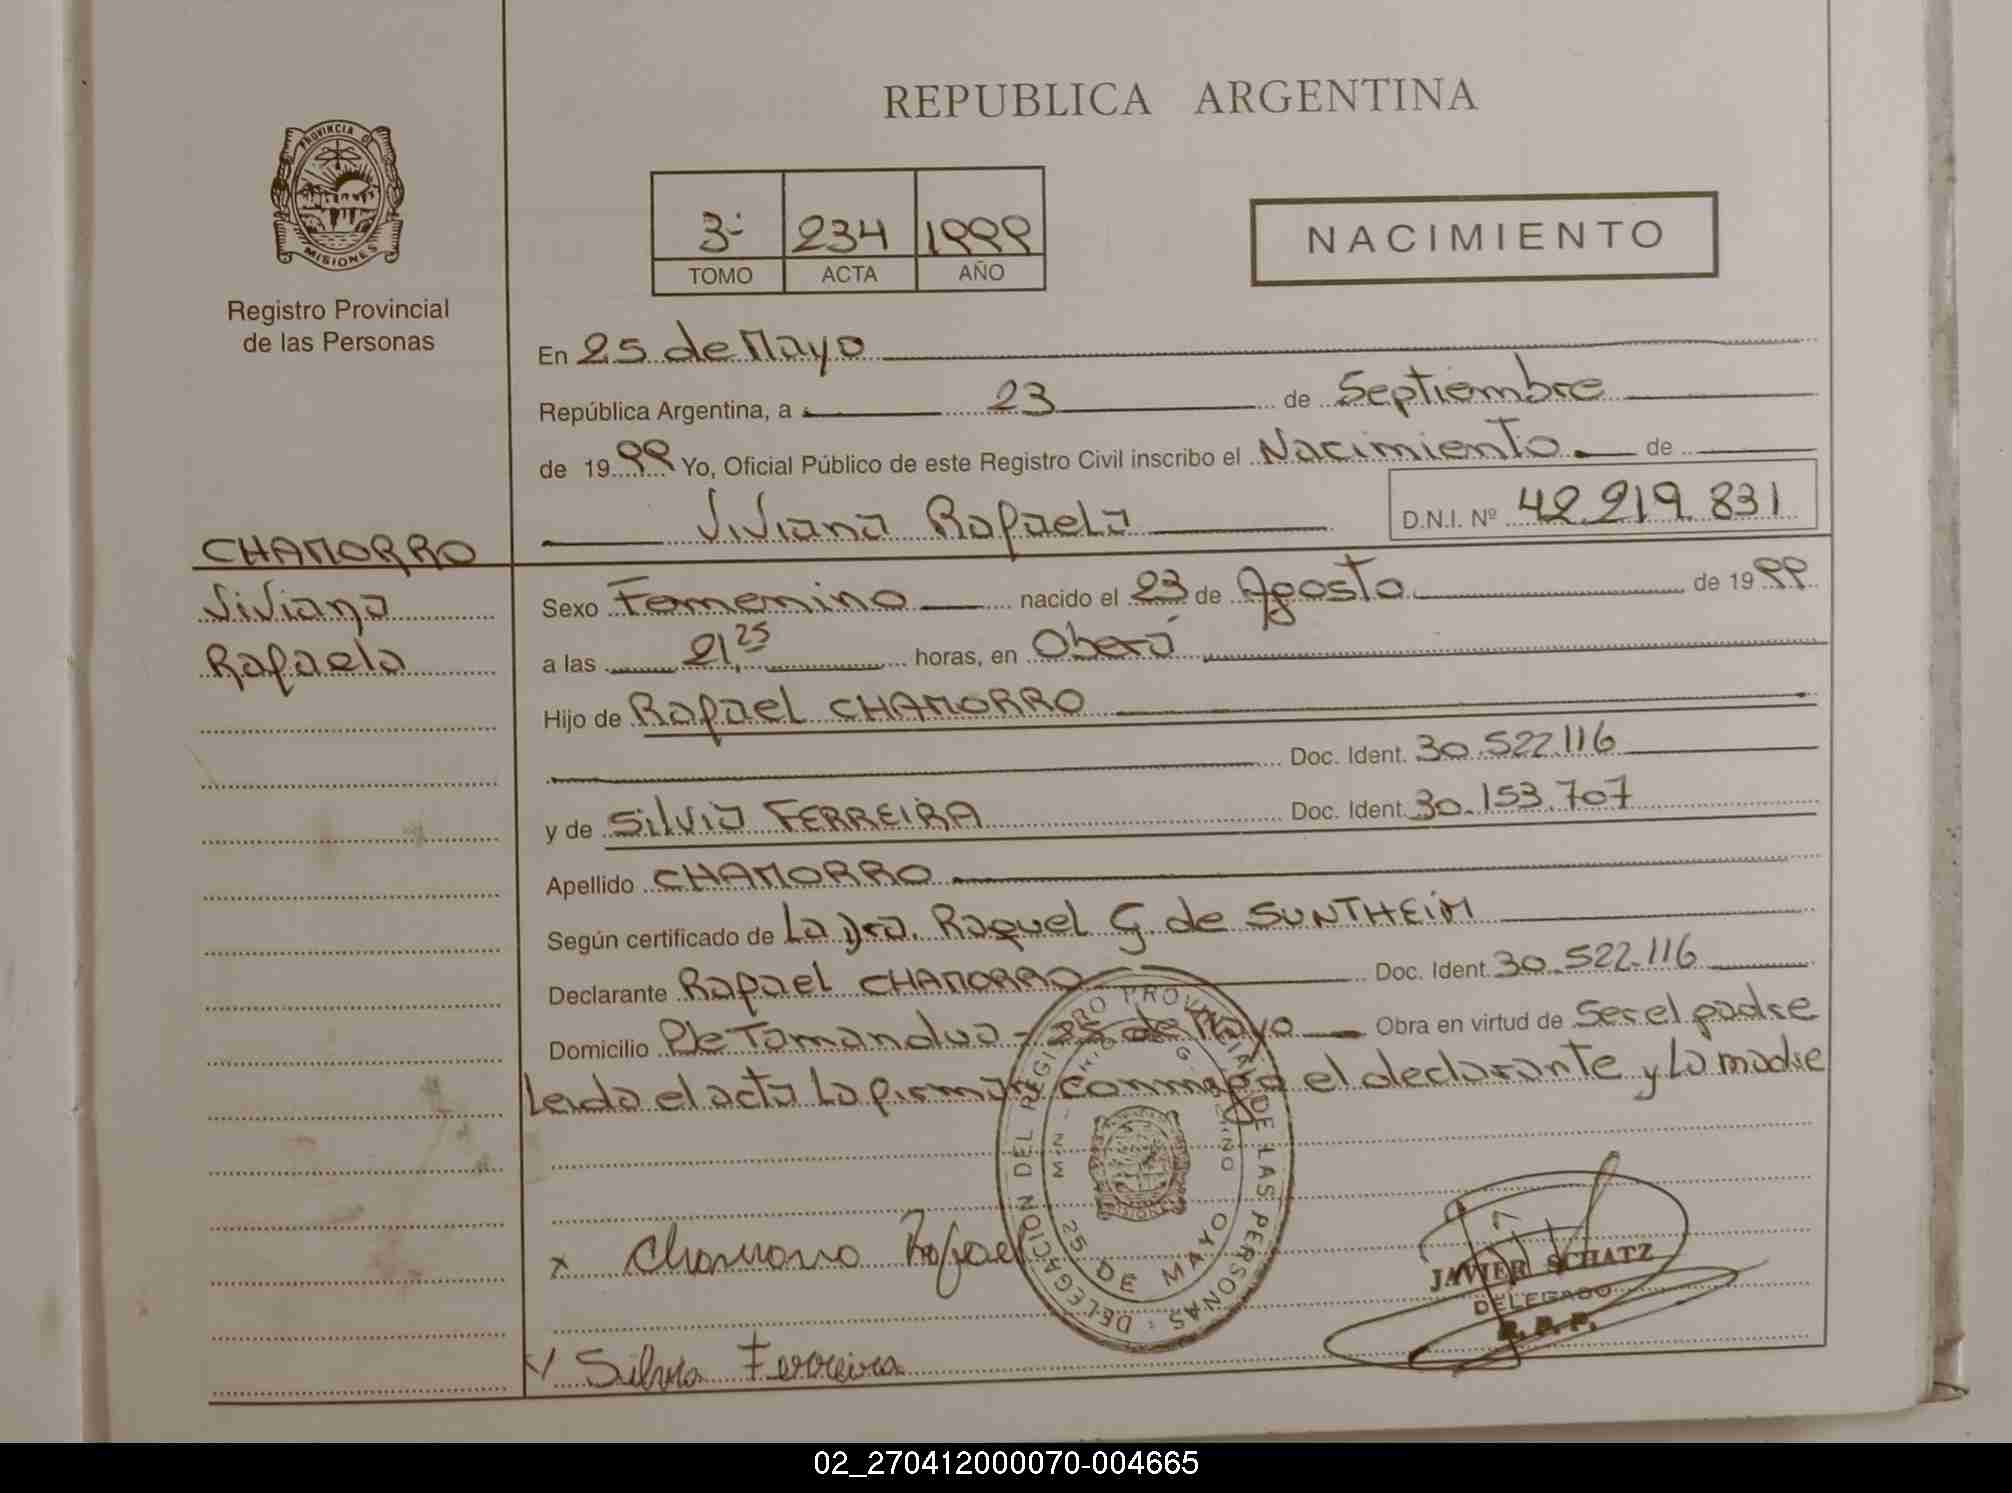 REPUBLICA ARGENTINA
PROVINCIA D
MISIONES
Registro Provincial
de las Personas
3- 234 1999
TOMO ACTA AÑO
NACIMIENTO
En 25 de Mayo
República Argentina, a 23 de Septiembre
de 1999 Yo, Oficial Público de este Registro Civil inscribo el Nacimiento de
Viviana Rafaela D.N.I. Nº 42.219.831
CHAMORRO
Viviana
Rafaela
Sexo Femenino nacido el 23 de Agosto de 1999
a las 21,25 horas, en Oberá
Hijo de Rafael CHAMORRO
Doc. Ident. 30.522.116
y de Silvia FERREIRA Doc. Ident. 30.153.707
Apellido CHAMORRO
Según certificado de La Dra. Raquel G de SUNTHEIM
Declarante Rafael CHAMORRO Doc. Ident. 30.522.116
Domicilio Pje Tamandua - 25 de Mayo Obra en virtud de Ser el padre
Leida el acta la firman conmigo el declarante y La madre
DELEGACION DEL REGISTRO PROVINCIAL DE LAS PERSONAS
25 DE MAYO
MISIONES
x Chamorro Rafael
JAVIER SCHATZ
DELEGADO
R. P. P.
Silvia Ferreira
02_270412000070-004665